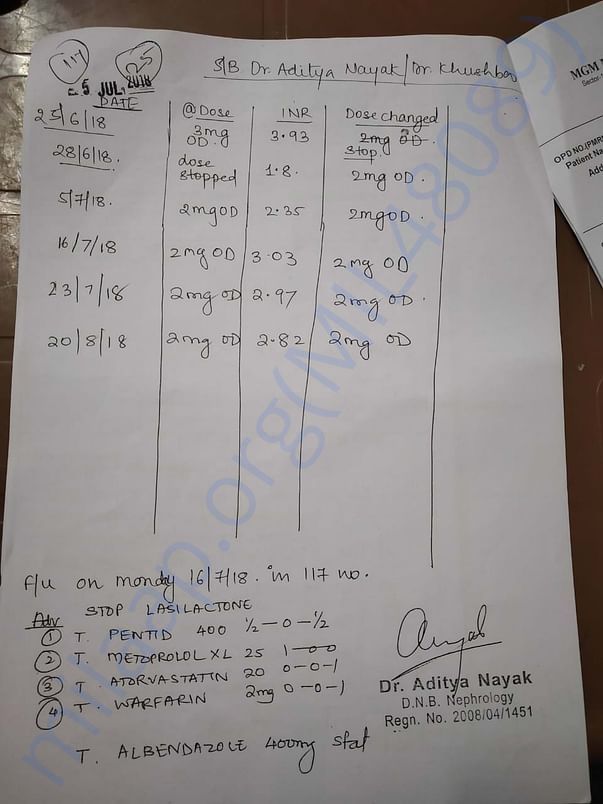 117
25
S/B Dr. Aditya Nayak / Dr. Khushboo
5 JUL 2018
DATE @Dose INR Dose changed
25/6/18 3mg OD. 3.93 2mg OD. Stop.
28/6/18. dose stopped 1.8. 2mg OD.
5/7/18. 2mg OD 2.35 2mg OD.
16/7/18 2mg OD 3.03 2mg OD
23/7/18 2mg OD 2.97 2mg OD.
20/8/18 2mg OD 2.82 2mg OD
f/u on monday 16/7/18. in 117 no.
Adv STOP LASILACTONE
① T. PENTID 400 ½-0-½
② T. METOPROLOL XL 25 1-0-0
③ T. ATORVASTATIN 20 0-0-1
④ T. WARFARIN 2mg 0-0-1
T. ALBENDAZOLE 400mg stat
Dr. Aditya Nayak
D.N.B. Nephrology
Regn. No. 2008/04/1451
MGM
Sector-
OPD NO.(PMRI
Patient Na
Add
milaap.org(MIL48089)